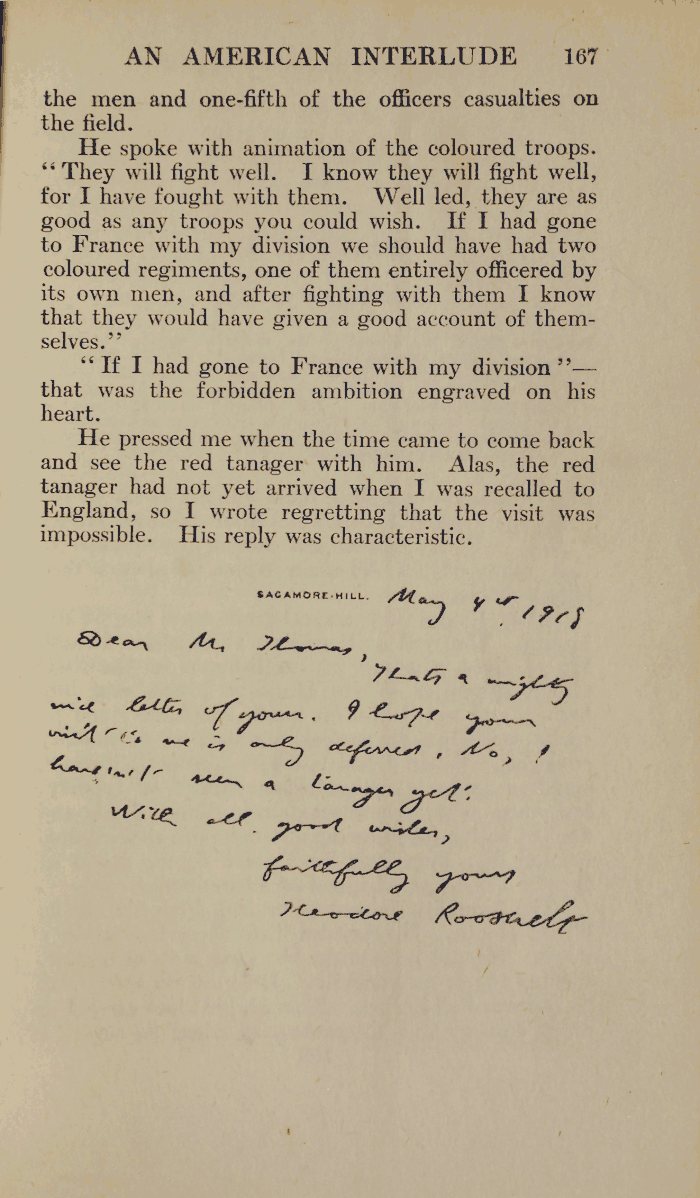 AN AMERICAN INTERLUDE 167
the men and one-fifth of the officers casualties on
the field.
He spoke with animation of the coloured troops.
“They will fight well. I know they will fight well,
for I have fought with them. Well led, they are as
good as any troops you could wish. If I had gone
to France with my division we should have had two
coloured regiments, one of them entirely officered by
its own men, and after fighting with them I know
that they would have given a good account of them-
selves.”
“If I had gone to France with my division”—
that was the forbidden ambition engraved on his
heart.
He pressed me when the time came to come back
and see the red tanager with him. Alas, the red
tanager had not yet arrived when I was recalled to
England, so I wrote regretting that the visit was
impossible. His reply was characteristic.
SAGAMORE-HILL. May 1918
Dear Mr Thomas,
Thats a mighty
nice letter of yours. I hope your
visit to me is only deferred. No, I
seen a tanager yet!
With all good wishes,
faithfully yours
Theodore Roosevelt